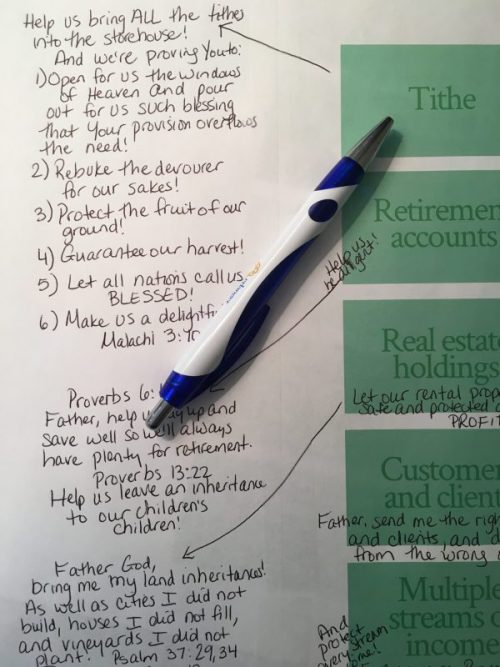 Help us bring ALL the tithes
into the storehouse!
And we're proving You to:
1) Open for us the windows
of Heaven and pour
out for us such blessing
that Your provision overflows
the need!
2) Rebuke the devourer
for our sakes!
3) Protect the fruit of our
ground!
4) Guarantee our harvest!
5) Let all nations call us
BLESSED!
6) Make us a
Malachi 3:
Proverbs 6:
Father, help up and
save well so we'll always
have plenty for retirement.
Proverbs 13:22
Help us leave an inheritance
to our children's
children!
Father God,
bring me my land inheritances!
As well as cities I did not
build, houses I did not fill,
and vineyards I did not
plant! Psalm 37:29,34
Tithe
Retiremen
accounts
Help us
Real estate
holdings
Let our rental prope
safe and protected
PROFIT
Customer
and client
Father, send me the righ
and clients, and d
from the wrong
Multiple
streams o
income
And
protect
every stream